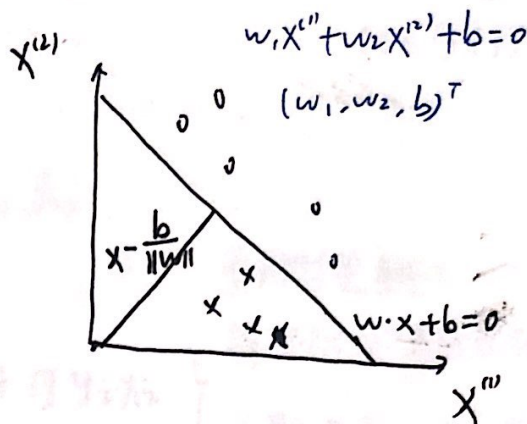 w₁x⁽¹⁾+w₂x⁽²⁾+b=0
(w₁,w₂,b)ᵀ
x⁽²⁾
x - b/||w||
w·x+b=0
x⁽¹⁾